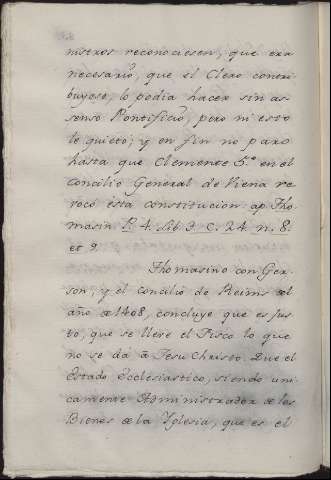 nistros reconociesen, que era
necesario, que el Clero contri
buyese, lo podia hacer sin as
senso Pontificio, pero ni esto
le quieto; y en fin no paro
hasta que Clemente 5.º en el
Concilio General de Viena re
vocó esta constitucion ap. Tho
masin. P. 4. Lib. 3. C. 24. n. 8.
et 9.
Thomasino con Ger
son, y el Concilio de Reims del
año de 1408, concluye que es jus
to, que se lleve el Fisco lo que
no se dá á Jesu Christo. Que el
Estado Eclesiastico, siendo uni
camente Administrador de los
Bienes de la Yglesia, que es el